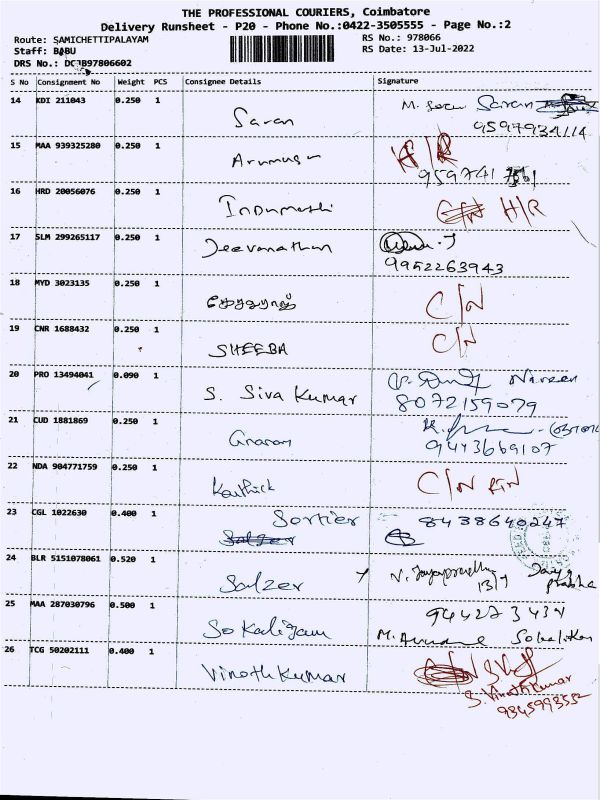 THE PROFESSIONAL COURIERS, Coimbatore
Delivery Runsheet - P20 - Phone No.:0422-3505555 - Page No.:2
Route: SAMICHETTIPALAYAM RS No.: 978066
Staff: BABU RS Date: 13-Jul-2022
DRS No.: 97806602
S No Consignment No Weight PCS Consignee Details Signature
14 KDI 211043 0.250 1 Saran M. Saran
9597934114
15 MAA 939325280 0.250 1 H/R
9597417
16 HRD 20056076 0.250 1 Indumathi H/R
17 SLM 299265117 0.250 1 Jeevanathan
9952263943
18 MYD 3023135 0.250 1 C/N
19 CNR 1688432 0.250 1 SHEEBA C/N
20 PRO 13494041 0.090 1 S. Siva Kumar Naveen
8072159079
21 CUD 1881869 0.250 1
9443669107
22 NDA 904771759 0.250 1 Karthick C/N
23 CGL 1022630 0.400 1 Sortier 8438640247
24 BLR 5151078061 0.520 1 Salzer N. Jayaprabha 13/7 Jaya
prabha
25 MAA 287030796 0.500 1
M.
26 TCG 50202111 0.400 1 Vinoth Kumar
S. Vinoth kumar
9345993552